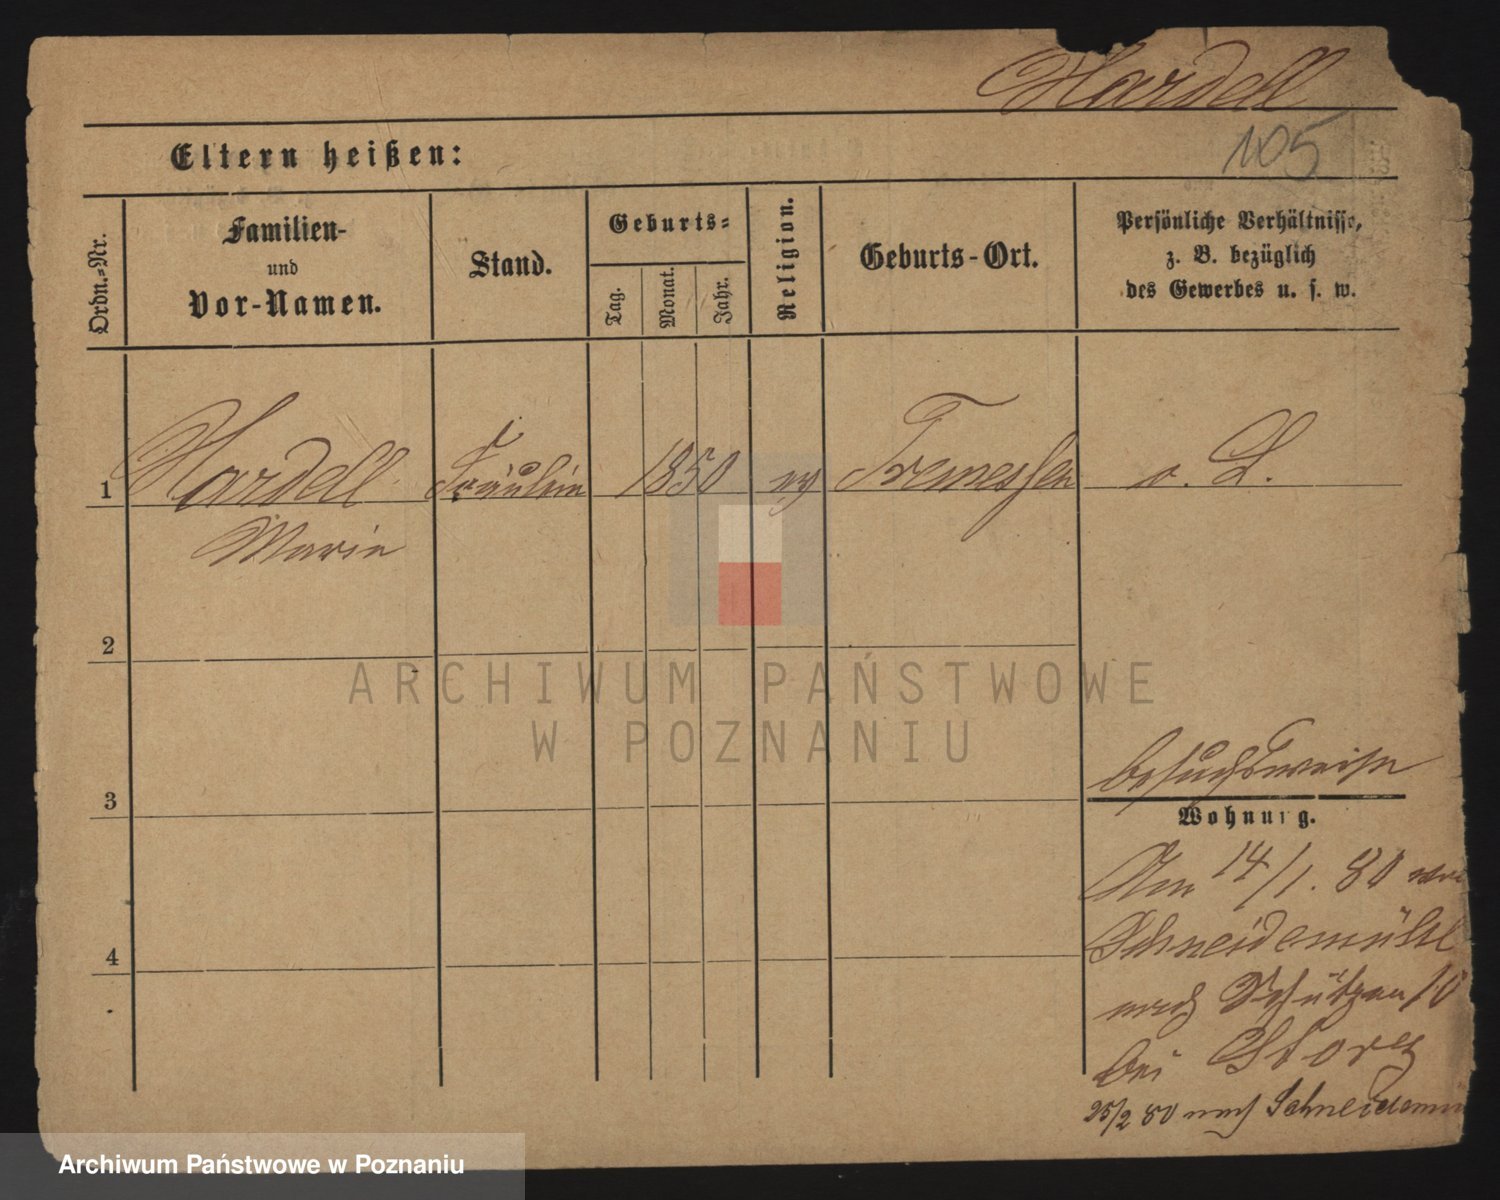 Hardell
105
Eltern heißen:
Ordn.-Nr.
Familien-
und
Vor-Namen.
Stand.
Geburts-
Tag.
Monat.
Jahr.
Religion.
Geburts-Ort.
Persönliche Verhältnisse,
z. B. bezüglich
des Gewerbes u. s. w.
1 Hardell Fräulein 1850 ev Tremessen o. L.
Marie
2
ARCHIWUM PAŃSTWOWE
W POZNANIU
besuchsweise
3
Wohnung.
Am 14/1. 80 von
Schneidemühl
4
nach Schützen 10
bei Storz
25/2 80 nach Schneidemü
Archiwum Państwowe w Poznaniu